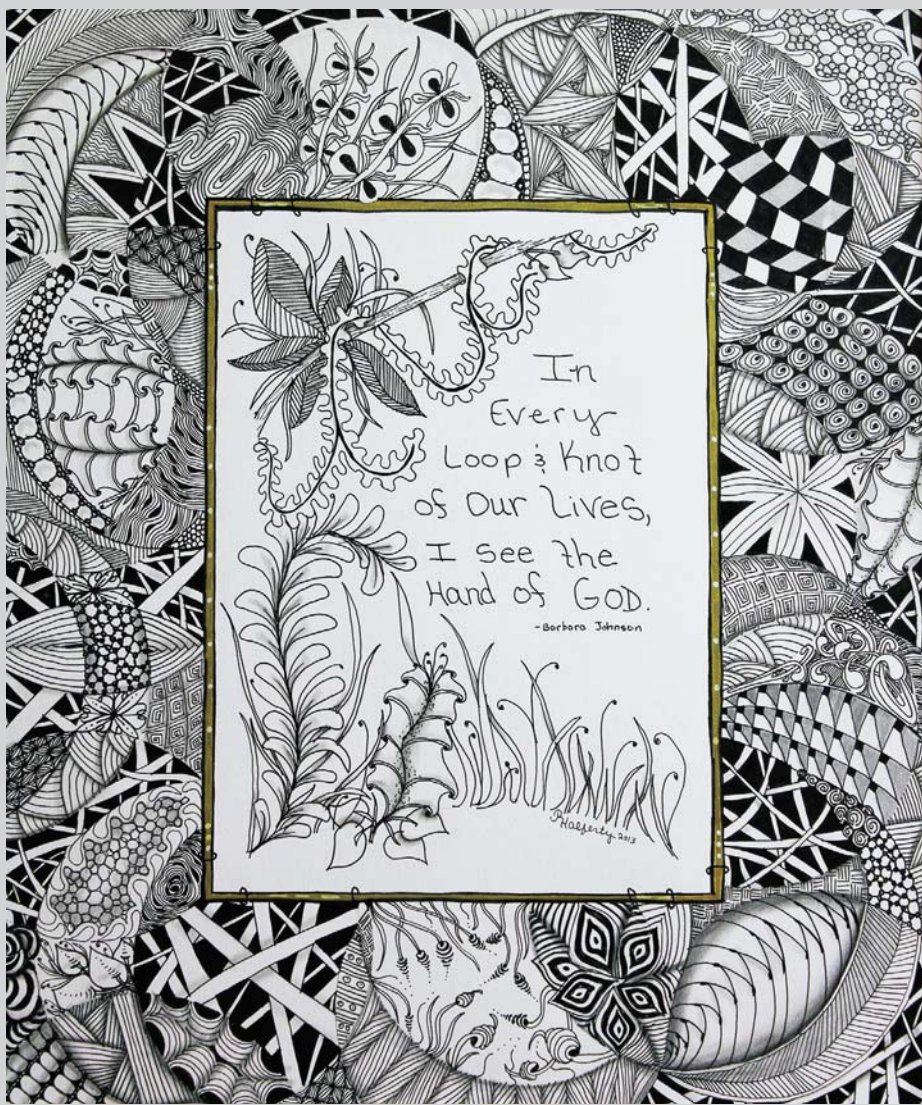 In
Every
Loop & Knot
of Our Lives,
I See the
Hand of GOD.
-Barbara Johnson
PHalferty 2013